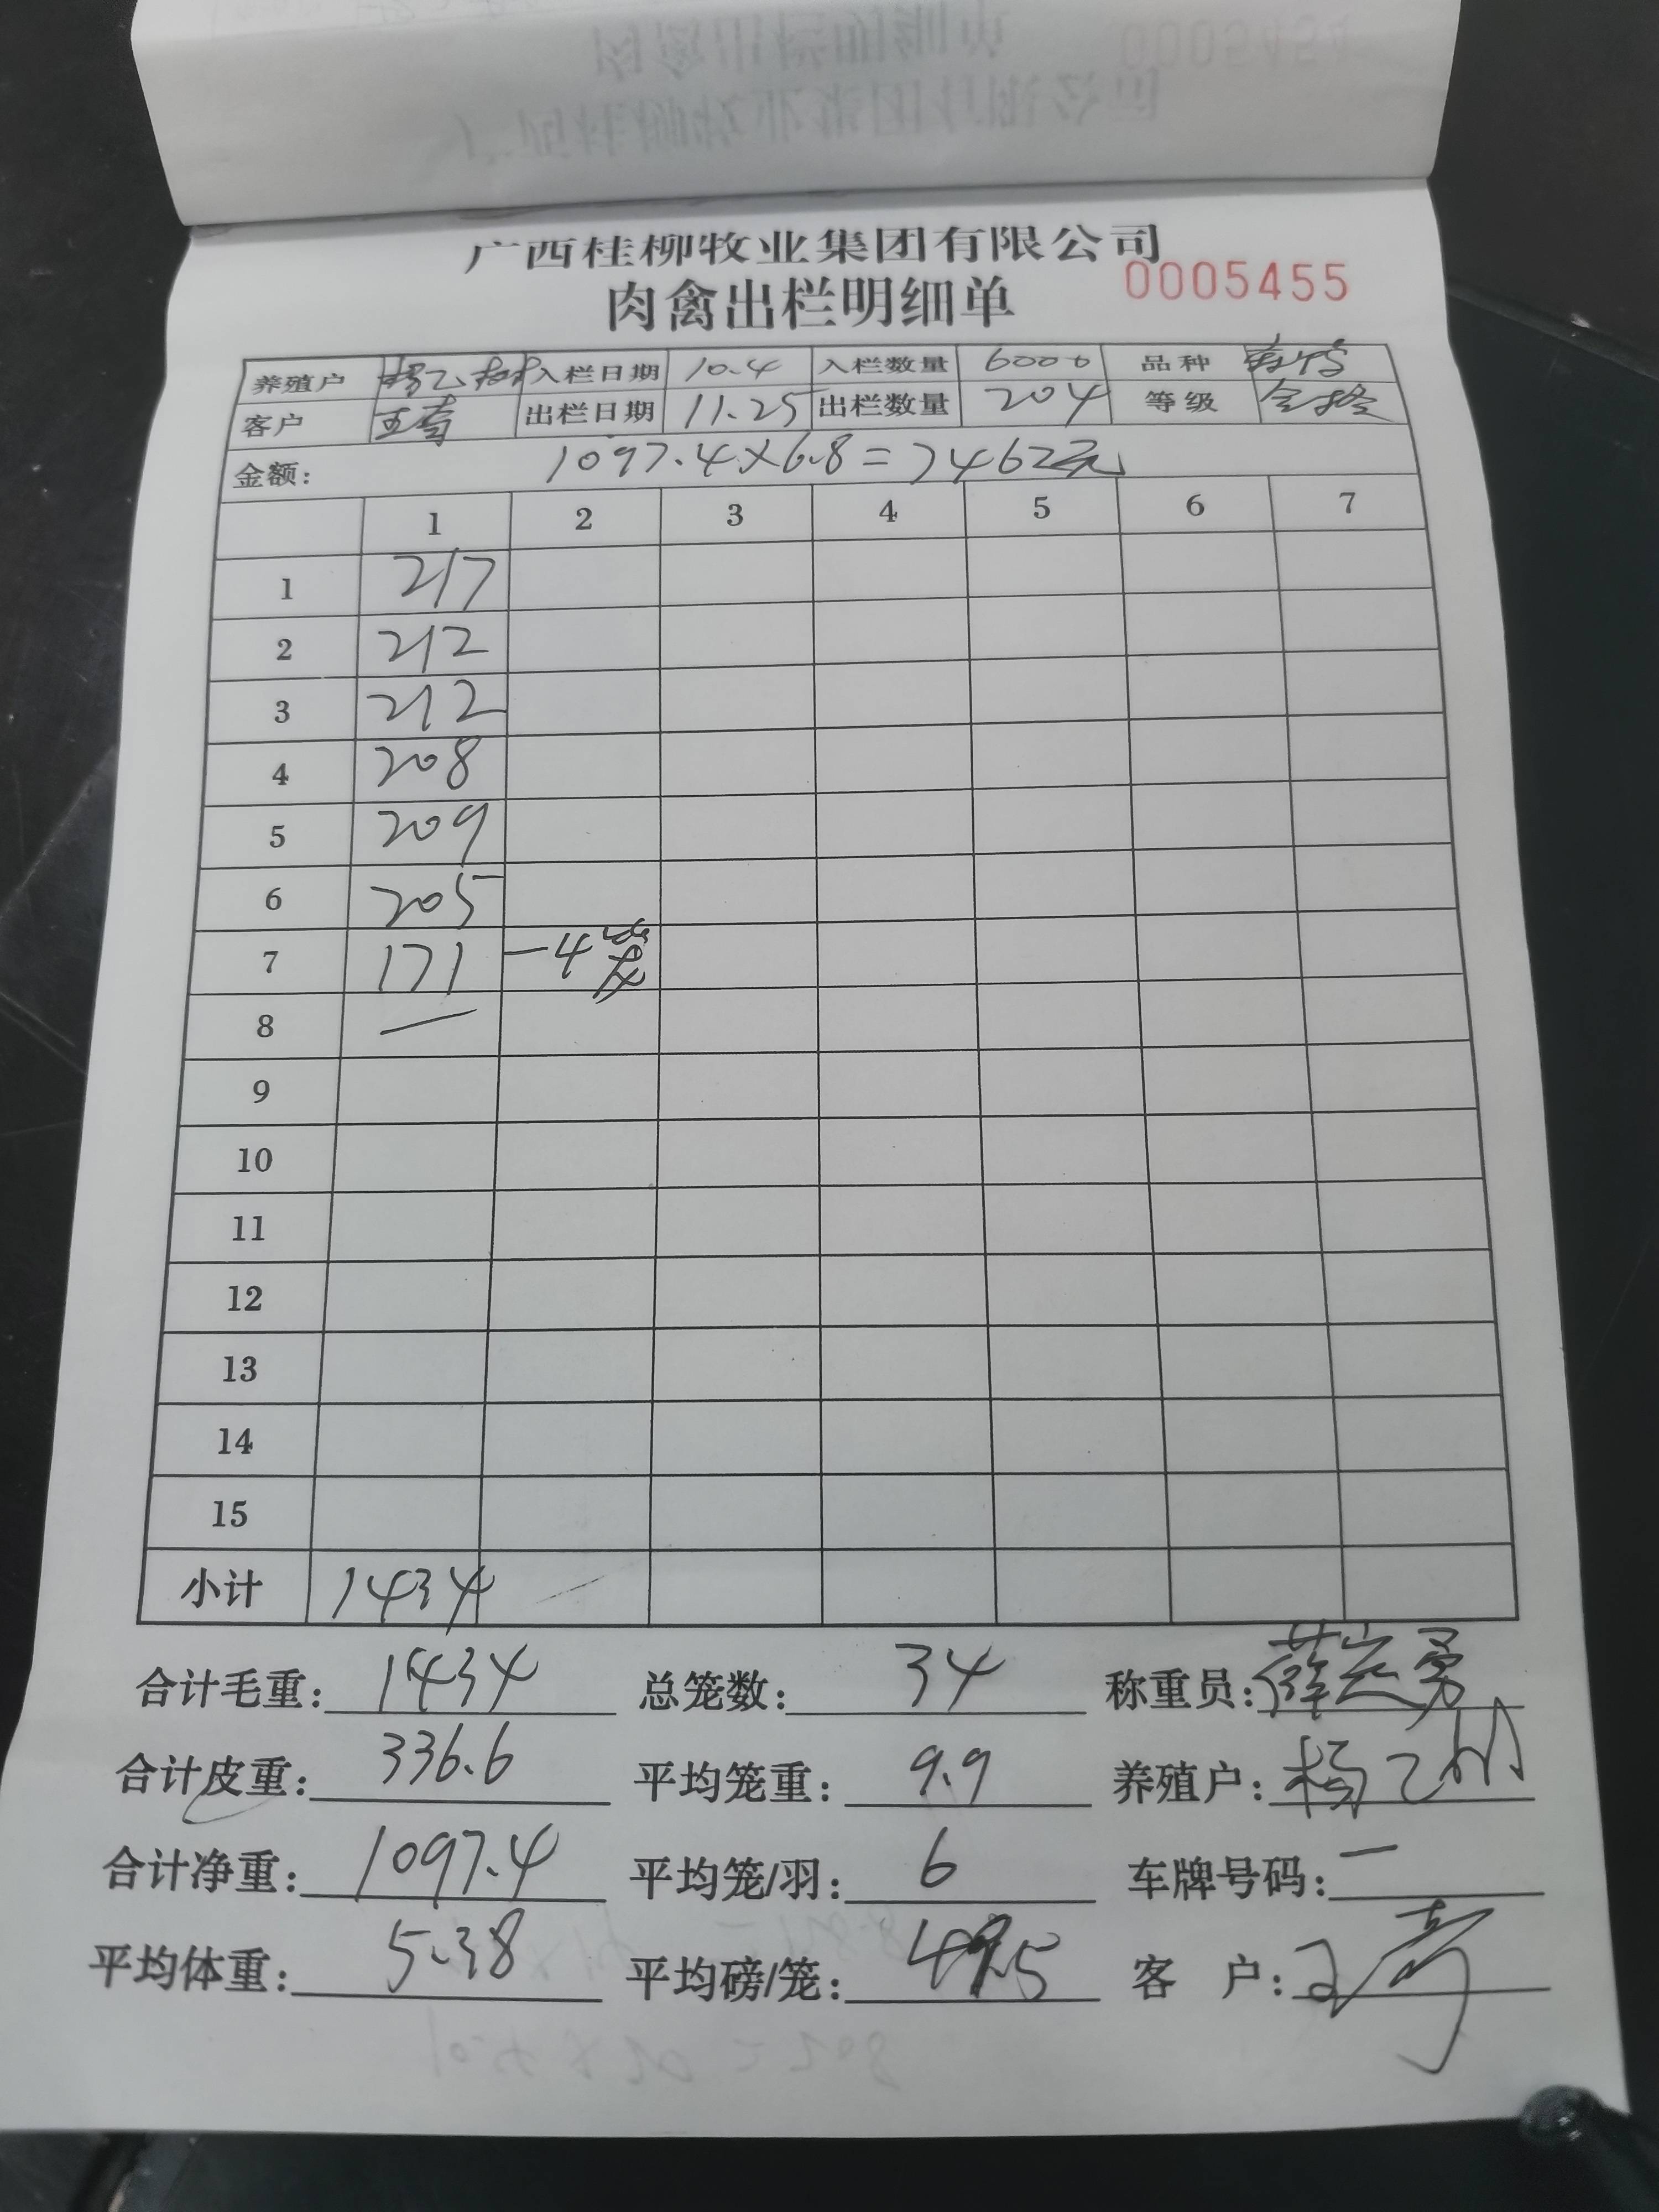 广西桂柳牧业集团有限公司
肉禽出栏明细单 0005455
养殖户 杨乙 入栏日期 10.4 入栏数量 6000 品种
客户 出栏日期 11.25 出栏数量 204 等级
金额: 1097.4×6.8=7462元
1 2 3 4 5 6 7
1 217
2 212
3 212
4 208
5 209
6 205
7 171 -4笼
8 —
9
10
11
12
13
14
15
小计 1434
合计毛重: 1434 总笼数: 34 称重员: 薛宏勇
合计皮重: 336.6 平均笼重: 9.9 养殖户: 杨乙
合计净重: 1097.4 平均笼/羽: 6 车牌号码: —
平均体重: 5.38 平均磅/笼: 49.5 客 户: